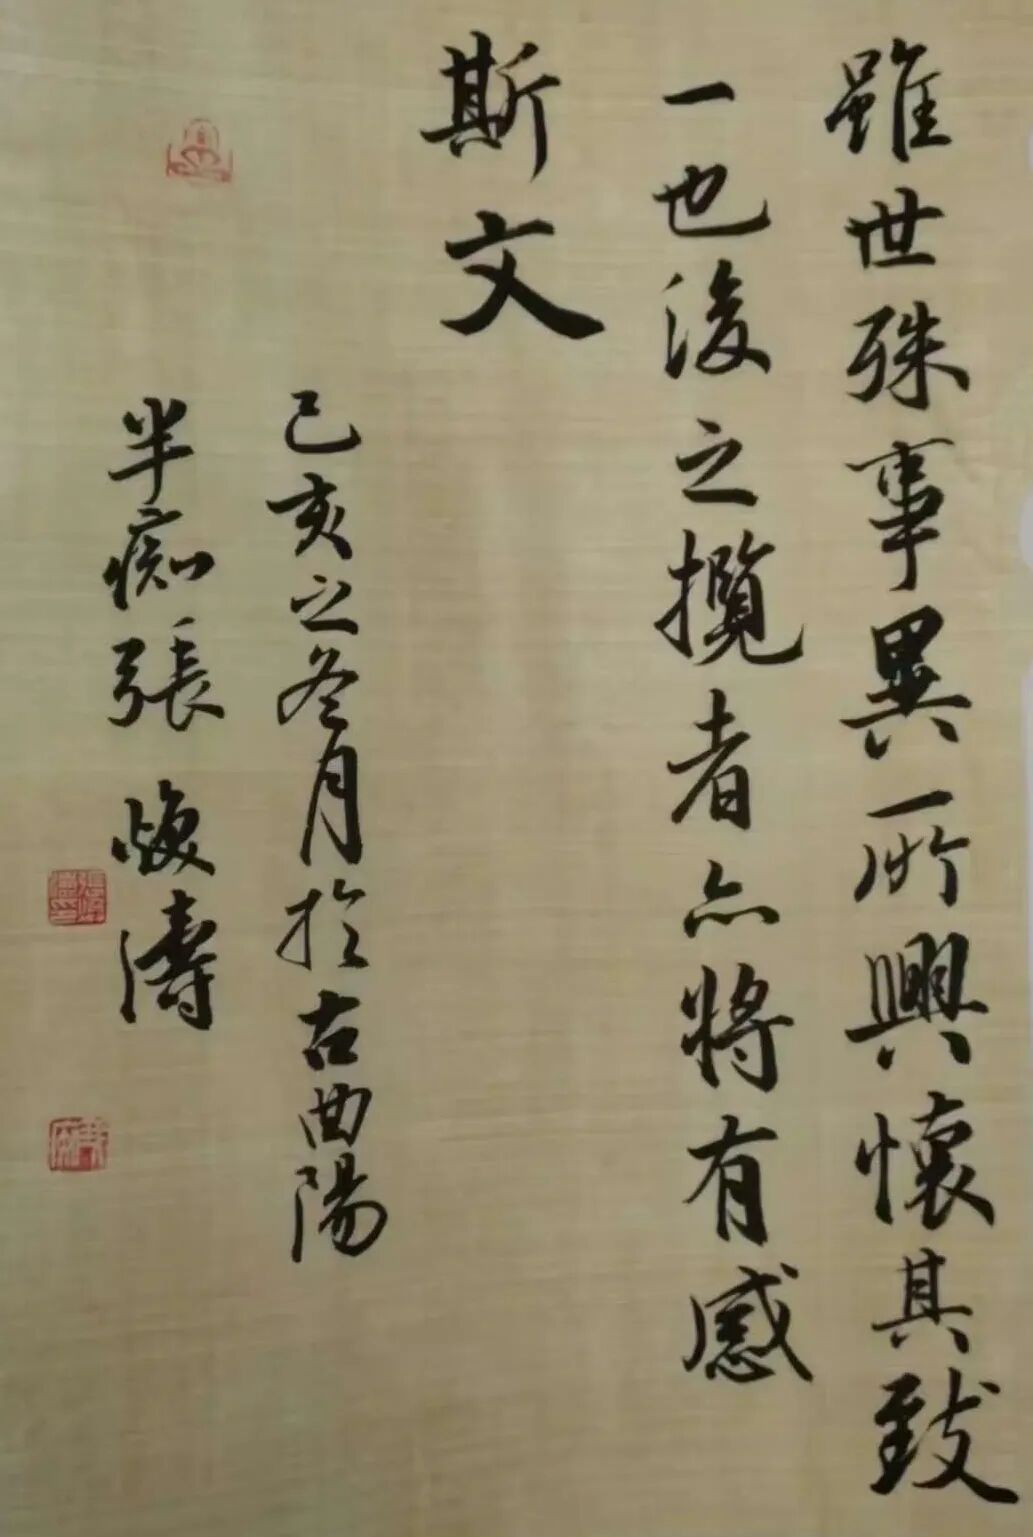 雖世殊事異所興懷其致
一也後之攬者亦將有感
斯文
己亥之冬月於古曲陽
半痴張煥濤